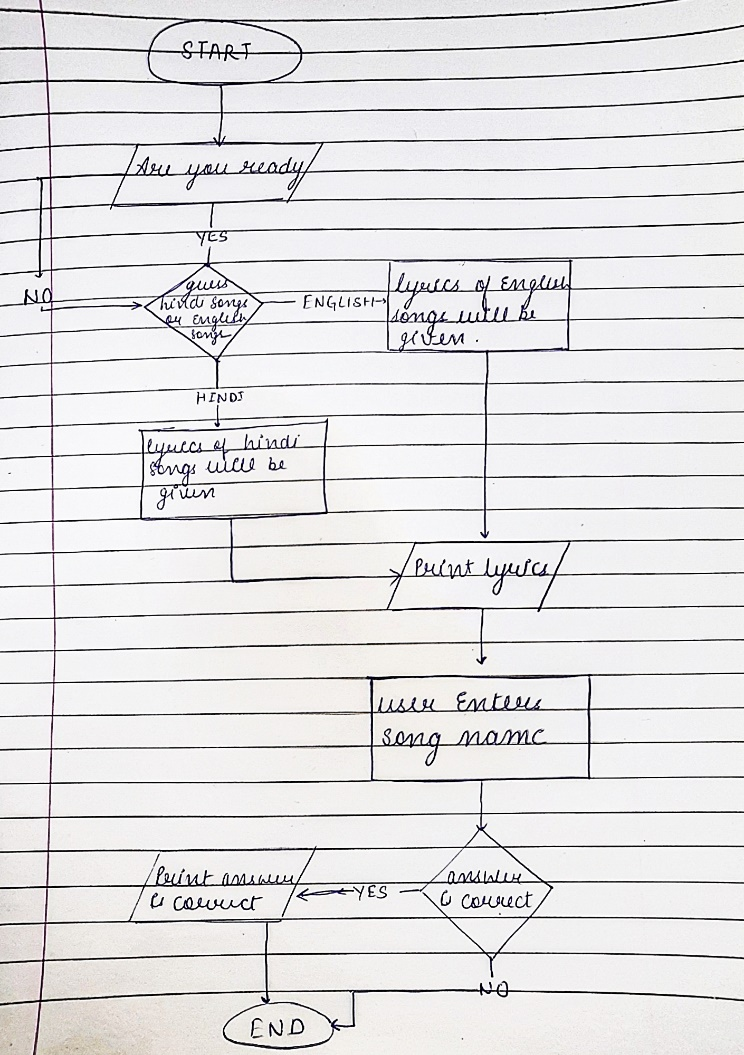 START
Are you ready
YES
NO
guess
hindi songs
or English
songs
ENGLISH
lyrics of English
songs will be
given.
HINDI
lyrics of hindi
songs will be
given
Print lyrics
user Enters
song name
answer
is correct
YES
Print answer
is correct
NO
END